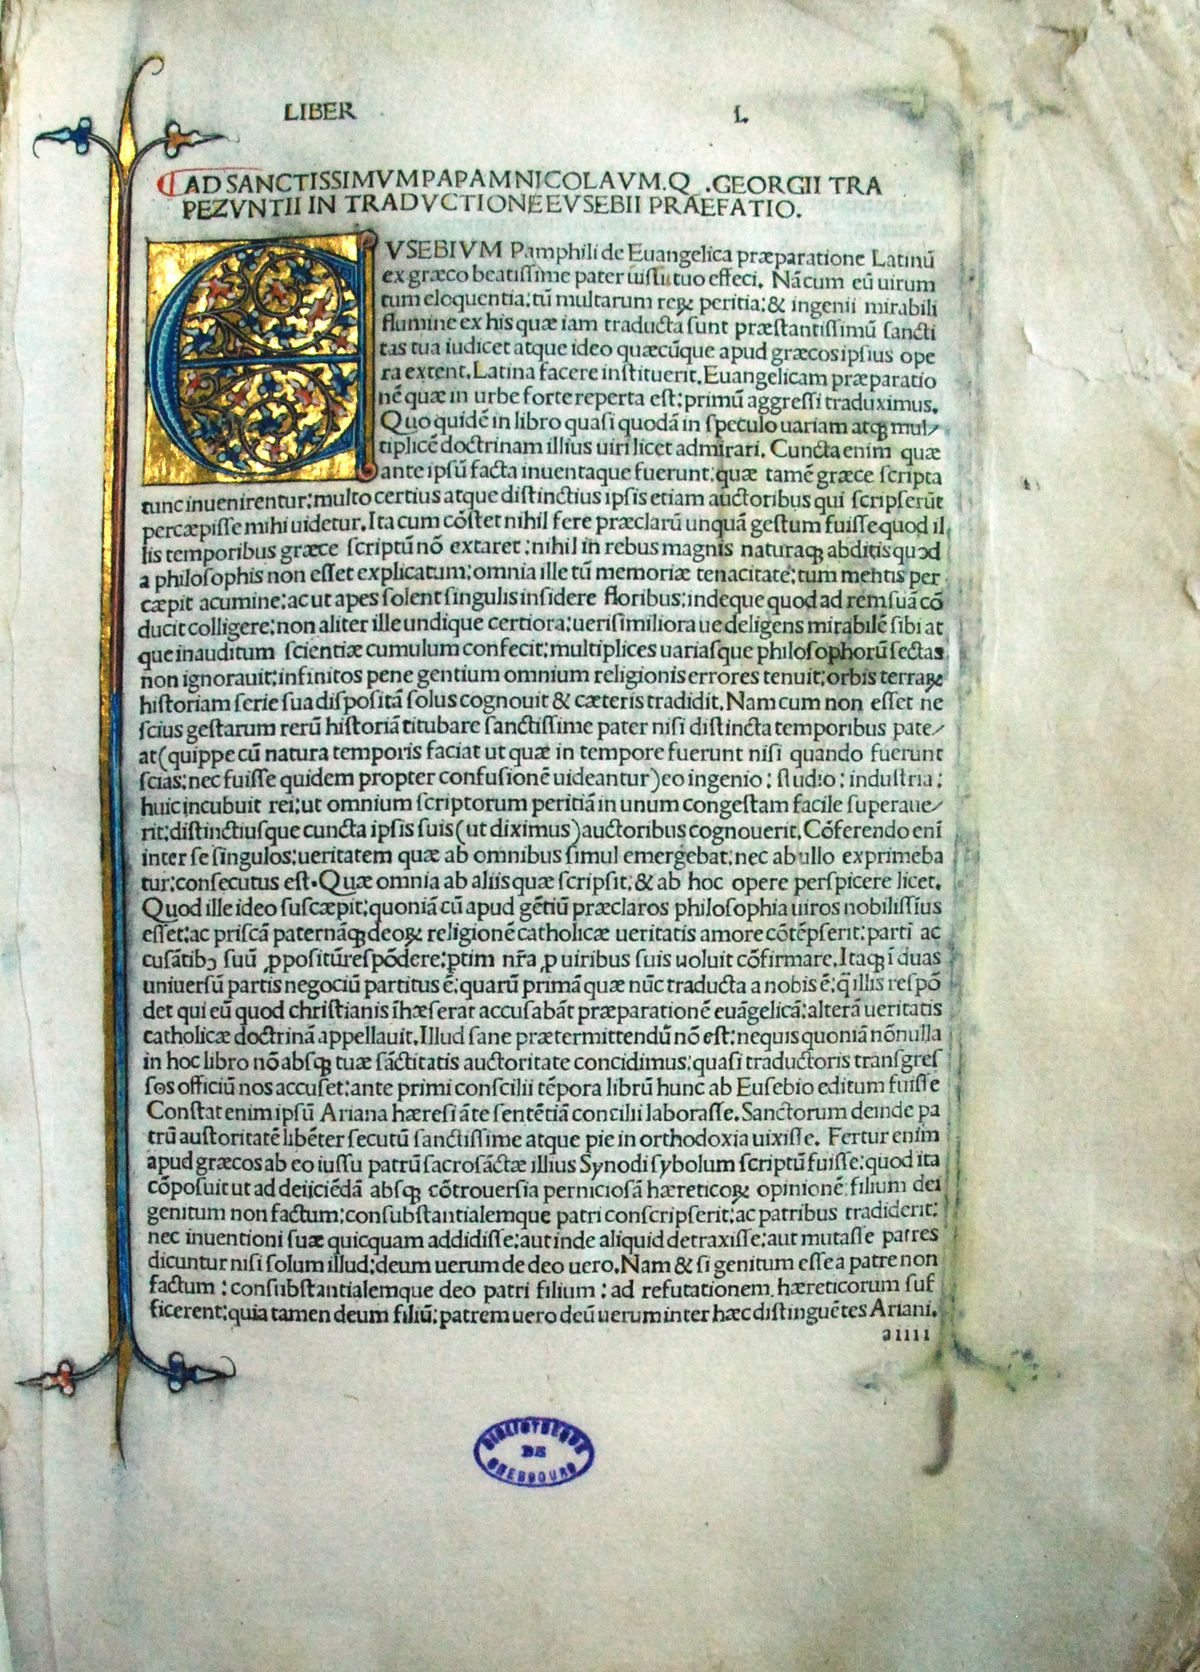 LIBER I.
AD SANCTISSIMVM PAPAM NICOLAVM. Q .GEORGII TRA
PEZVNTII IN TRADVCTIONE EVSEBII PRAEFATIO.
EVSEBIVM Pamphili de Euangelica præparatione Latinū
ex græco beatissime pater iussu tuo effeci. Nācum eū uirum
tum eloquentia: tū multarum reꝝ peritia: & ingenii mirabili
flumine ex his quæ iam traducta sunt præstantissimū sancti
tas tua iudicet atque ideo quæcūque apud græcos ipsius ope
ra extent. Latina facere instituerit. Euangelicam præparatio
nē quæ in urbe forte reperta est: primū aggressi traduximus.
Quo quidē in libro quasi quodā in speculo uariam atqꝫ mul⸗
tiplicē doctrinam illius uiri licet admirari. Cuncta enim quæ
ante ipsū facta inuentaque fuerunt: quæ tamē græce scripta
tunc inuenirentur: multo certius atque distinctius ipsis etiam auctoribus qui scripserūt
percæpisse mihi uidetur. Ita cum cōstet nihil fere præclarū unquā gestum fuisse quod il
lis temporibus græce scriptū nō extaret: nihil in rebus magnis naturaqꝫ abditis quod
a philosophis non esset explicatum: omnia ille tū memoriæ tenacitate: tum mentis per
cæpit acumine: ac ut apes solent singulis insidere floribus: indeque quod ad rem suā cō
ducit colligere: non aliter ille undique certiora: uerisimiliora ue deligens mirabilē sibi at
que inauditum scientiæ cumulum confecit: multiplices uariasque philosophorū sectas
non ignorauit: infinitos pene gentium omnium religionis errores tenuit: orbis terraꝝ
historiam serie sua dispositā solus cognouit & cæteris tradidit. Nam cum non esset ne
scius gestarum rerū historiā titubare sanctissime pater nisi distincta temporibus pate⸗
at (quippe cū natura temporis faciat ut quæ in tempore fuerunt nisi quando fuerunt
scias: nec fuisse quidem propter confusionē uideantur) eo ingenio: studio: industria:
huic incubuit rei: ut omnium scriptorum peritiā in unum congestam facile superaue⸗
rit: distinctiusque cuncta ipsis suis (ut diximus) auctoribus cognouerit. Cōferendo eni
inter se singulos: ueritatem quæ ab omnibus simul emergebat: nec ab ullo exprimeba
tur: consecutus est. Quæ omnia ab aliis quæ scripsit: & ab hoc opere perspicere licet.
Quod ille ideo suscæpit: quoniā cū apud gētiū præclaros philosophia uiros nobilissius
esset: ac priscā paternāqꝫ deoꝝ religionē catholicæ ueritatis amore cōtēpserit: parti ac
cusātibꝰ suū ꝓpositū respōdere: ꝑtim nr̄a ꝓ uiribus suis uoluit cōfirmare. Itaqꝫ ī duas
uniuersū partis negociū partitus ē: quarū primā quæ nūc traducta a nobis ē: q̄ illis respō
det qui eū quod christianis īhæserat accusabāt præparationē euāgelicā: alterā ueritatis
catholicæ doctrinā appellauit. Illud sane prætermittendū nō est: nequis quoniā nōnulla
in hoc libro nō absqꝫ tuæ sāctitatis auctoritate concidimus: quasi traductoris transgres
sos officiū nos accuset: ante primi conscilii tēpora librū hunc ab Eusebio editum fuisse
Constat enim ipsū Ariana hæresi āte sentētiā concilii laborasse. Sanctorum deinde pa
trū austoritatē libēter secutū sanctissime atque pie in orthodoxia uixisse. Fertur enim
apud græcos ab eo iussu patrū sacrosāctæ illius Synodi sybolum scriptū fuisse: quod ita
cōposuit ut ad deiiciēdā absqꝫ cōtrouersia perniciosā hæreticoꝝ opinionē filium dei
genitum non factum: consubstantialemque patri conscripserit: ac patribus tradiderit:
nec inuentioni suæ quicquam addidisse: aut inde aliquid detraxisse: aut mutasse patres
dicuntur nisi solum illud: deum uerum de deo uero. Nam & si genitum esse a patre non
factum: consubstantialemque deo patri filium: ad refutationem hæreticorum suf
ficerent: quia tamen deum filiū: patrem uero deū uerum inter hæc distinguētes Ariani.
aiiii
BIBLIOTHEQUE
DE
CHERBOURG